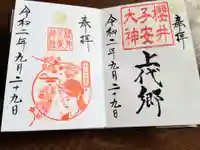 奉拝
櫻井
子安
大神
上代郷
令和二年九月二十九日
奉拝
令和二年九月二十九日